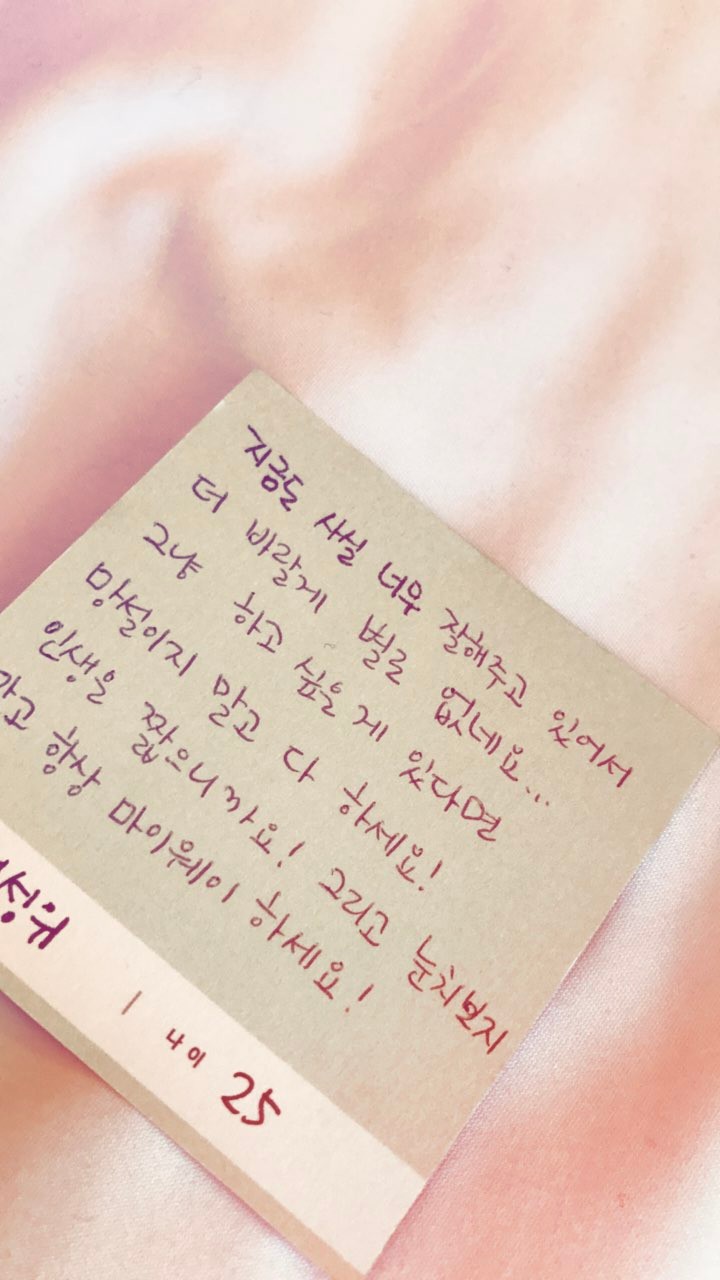 지금도 사실 너무 잘해주고 있어서
더 바랄게 별로 없네요...
그냥 하고 싶은 게 있다면
망설이지 말고 다 하세요!
인생은 짧으니까요! 그리고 눈치보지
말고 항상 마이웨이 하세요!
성규 | 나이 25